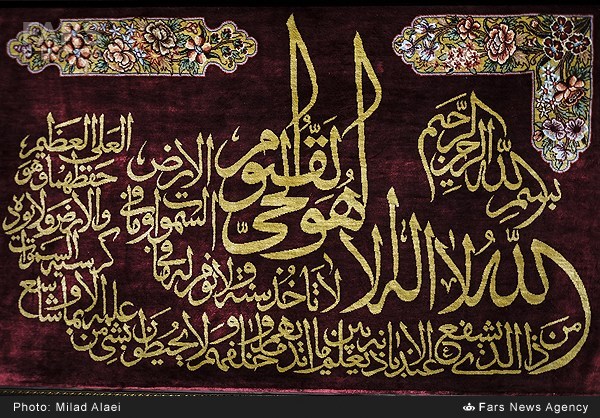 بسم الله الرحمن الرحیم
الله لا اله الا هو الحی القیوم
لا تاخذه سنة و لا نوم له ما فی
السموات و ما فی
الارض
من ذا الذی یشفع عنده الا باذنه یعلم ما بین ایدیهم و ما خلفهم و لا یحیطون بشیء من
علمه الا بما شاء وسع
کرسیه السموات
والارض و لا یوده
حفظهما و هو
العلی العظیم
Photo: Milad Alaei
Fars News Agency